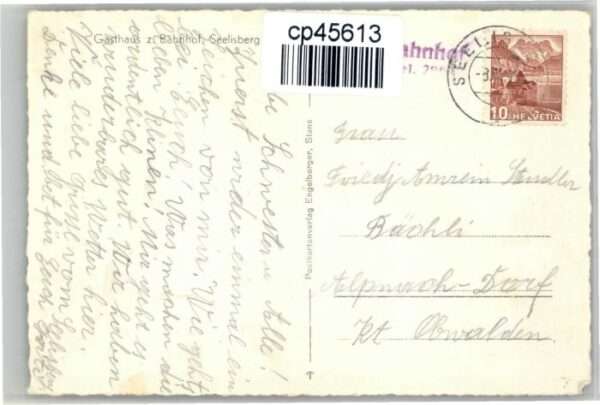 Gasthaus z. Bahnhof, Seelisberg
cp45613
Bahnhof
Tel.
SEELIS
10 HELVETIA
Postkartenverlag Engelberger, Stans
Liebe Schwester u. Alle!
wieder einmal ein
Zeichen von mir. Wie geht's
bei Euch? Was machen die
lieben Kleinen? Mir geht es
ordentlich gut. Wir haben
wunderbares Wetter hier.
Viele liebe Grüsse vom
Denke und bet für Euch
Frau
Friedj Amrein Sandler
Bächli
Alpnach-Dorf
Kt. Obwalden.